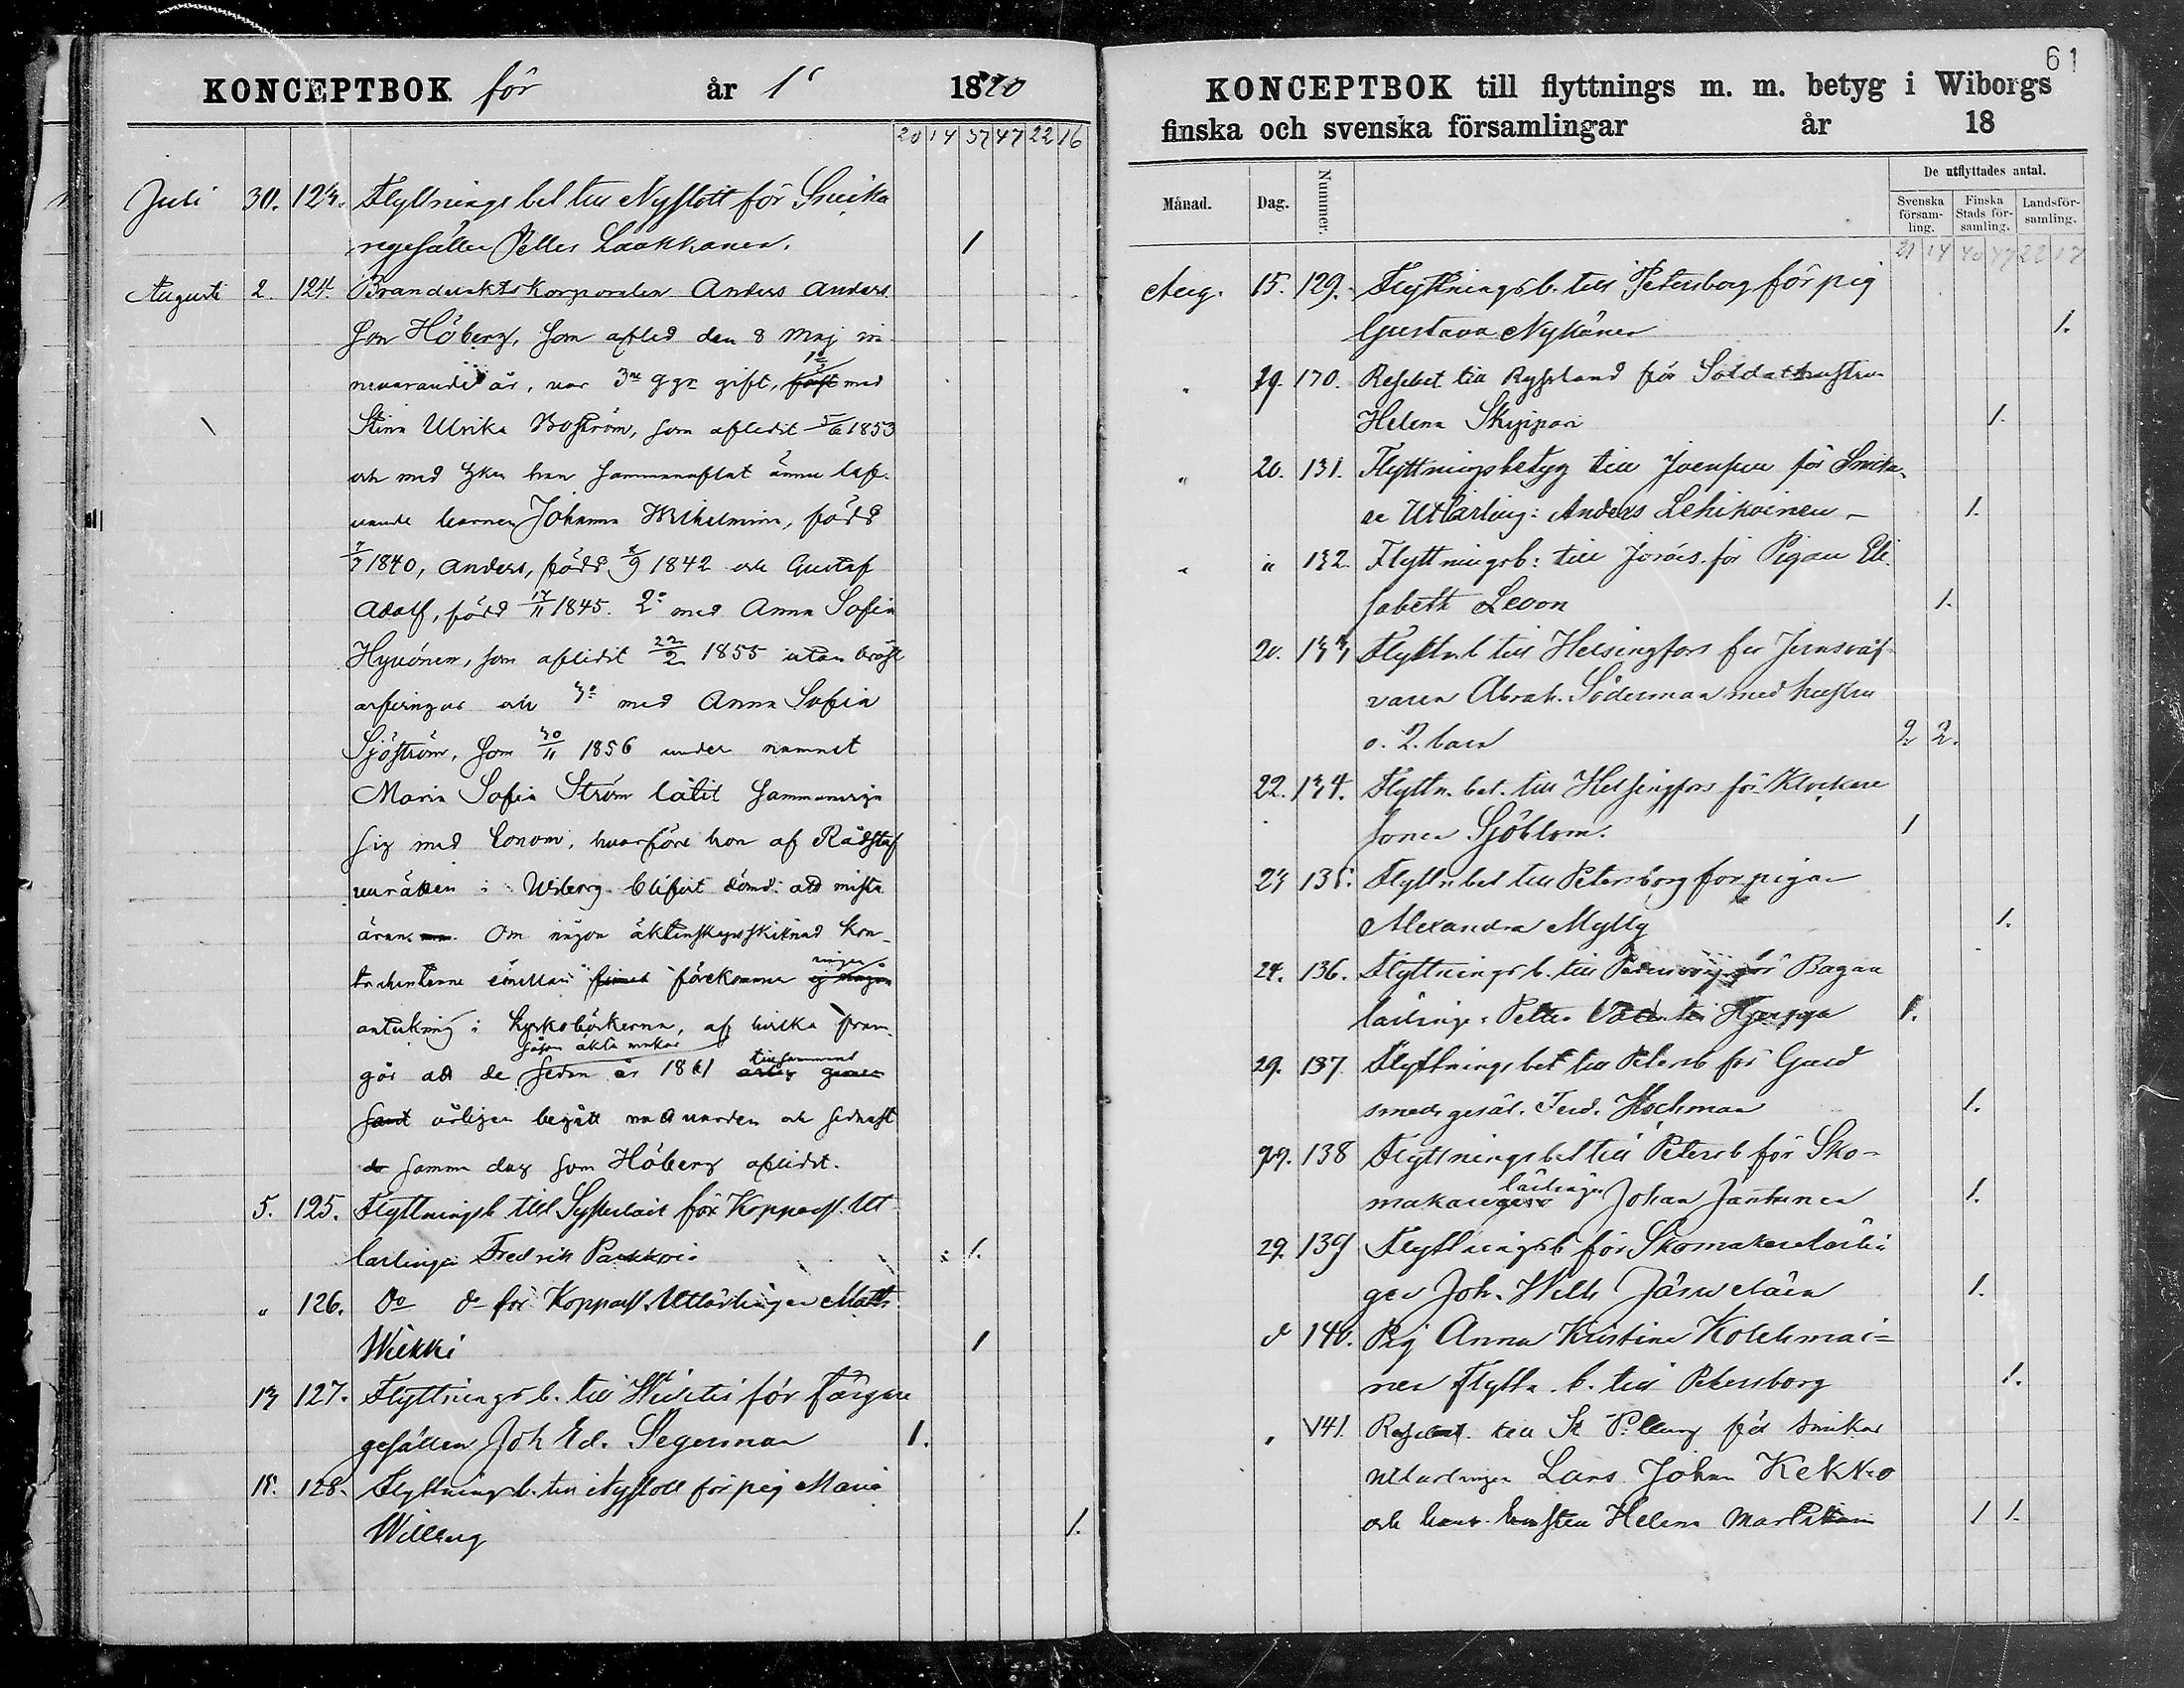 KONCEPTBOK för år 1 1870
20 14 37 47 22 16
Juli 30. 123. Flyttnings bet till Nyslott för Snicka
regesällen Petter Laakkanen. 1
Augusti 2. 124. Brandvaktskorporalen Anders Anders
son Höberg, som afled den 8 Maj in
nevarande år, var 3ne ggr gift, 1o med
Stina Ulrika Boström, som aflidit 5/6 1853
och med hvilken han sammanaflat ännu lef-
vande barnen Johanna Wilhelmina, född
7/7 1840, Anders, född 8/9 1842 och Gustaf
Adolf, född 17/11 1845. 2o med Anna Sofia
Hyvönen, som aflidit 22/2 1855 utan bröst
arfvingar och 3o med Anna Sofia
Sjöström, som 30/11 1856 under namnet
Maria Sofia Ström låtit sammanviga
sig med honom, hvarföre hon af Rådstuf
vurätten i Wiborg blifvit dömd att mista
äran. Om någon äktenskapsskilnad kon-
trahenterne emellan förekommer ingen
anteckning i kyrkoböckerna, af hvilka fram
såsom äkta makar tillsammans
går att de sedan år 1861
årligen begått nattvarden och sednast
samma dag som Höberg aflidit.
5. 125. Flyttningsb. till Systerbäck för Kopparsl. Ut
lärlingen Fredrik Parkkoi 1.
" 126. Do do för Kopparsl. Utlärlingen Matts
Wiekki 1
13 127. Flyttningsb. till Wichtis för Färgare
gesällen Joh Ed. Segerman 1.
15. 128. Flyttningsb. till Nyslott för pig Maria
Willberg 1.
61
KONCEPTBOK till flyttnings m. m. betyg i Wiborgs
finska och svenska församlingar år 18
Månad. Dag. Nummer. De utflyttades antal.
Svenska försam-ling. Finska Stads för-samling. Landsför-samling.
21 14 40 47 22 17
Aug. 15. 129. Flyttningsb. till Petersborg för pig
Gustava Nykänen 1.
" 19. 130. Resebet till Ryssland för Soldathustrun
Helena Skippari 1.
" 20. 131. Flyttningsbetyg till Joensuu för Snicka-
re Utlärling: Anders Lehikoinen - 1.
" " 132. Flyttningsb: till Jorois för Pigan Eli
sabeth Levon 1.
20. 133 Flyttn.b till Helsingfors för Jernsvar
varen Abrah. Söderman med hustru
o. 2. barn 2 2.
22. 134. Flyttn. bet. till Helsingfors för Klockare
sonen Sjöblom. 1
23 135. Flyttn bet till Petersborg för pigan
Alexandra Mylly 1.
24. 136. Flyttningsb. till Petersborg för Bagare
lärlingen Petter Hjerppe 1.
29. 137 Flyttnings bet till Petersb för Guld
smeds gesäl. Ferd. Hochman 1.
29. 138 Flyttnings bet till Petersb för Sko-
makare lärlingen Johan Jantunen 1.
29. 139 Flyttningsb för Skomakare lärlin
gen Joh. Wilh Järveläin 1.
d 140. Pig Anna Kristina Kolehmai=
nen Flyttn. b. till Petersborg 1.
" 141. Resebet till St Pburg för Snickar
utlärlingen Lars Johan Kekko
och hans hustru Helena 1 1.